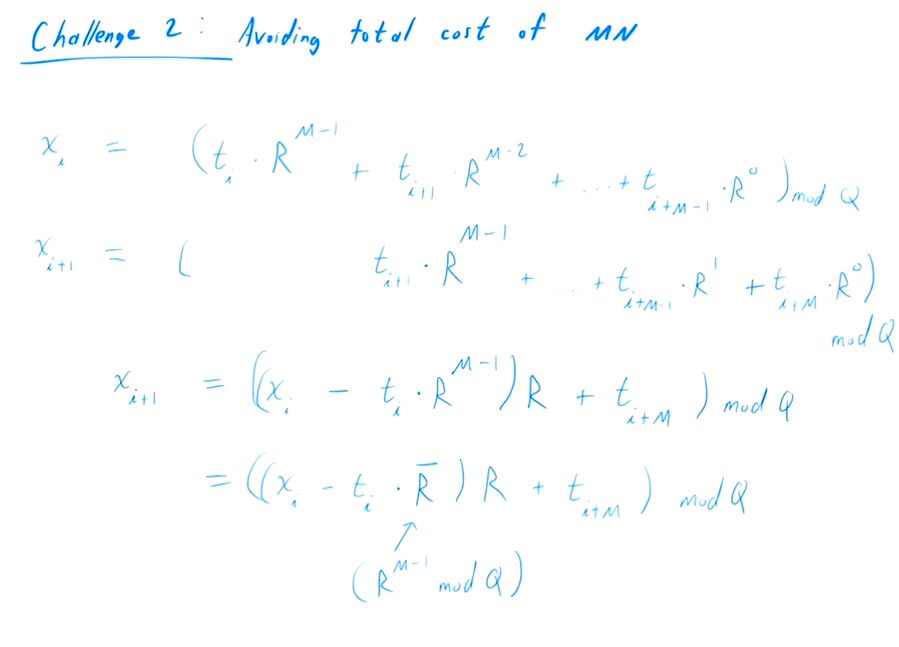 Challenge 2 : Avoiding total cost of MN
x_i = (t_i · R^{M-1} + t_{i+1} · R^{M-2} + ... + t_{i+M-1} · R^0) mod Q
x_{i+1} = ( t_{i+1} · R^{M-1} + ... + t_{i+M-1} · R^1 + t_{i+M} · R^0)
mod Q
x_{i+1} = ((x_i - t_i · R^{M-1}) R + t_{i+M}) mod Q
= ((x_i - t_i · R̅) R + t_{i+M}) mod Q
↗
(R^{M-1} mod Q)